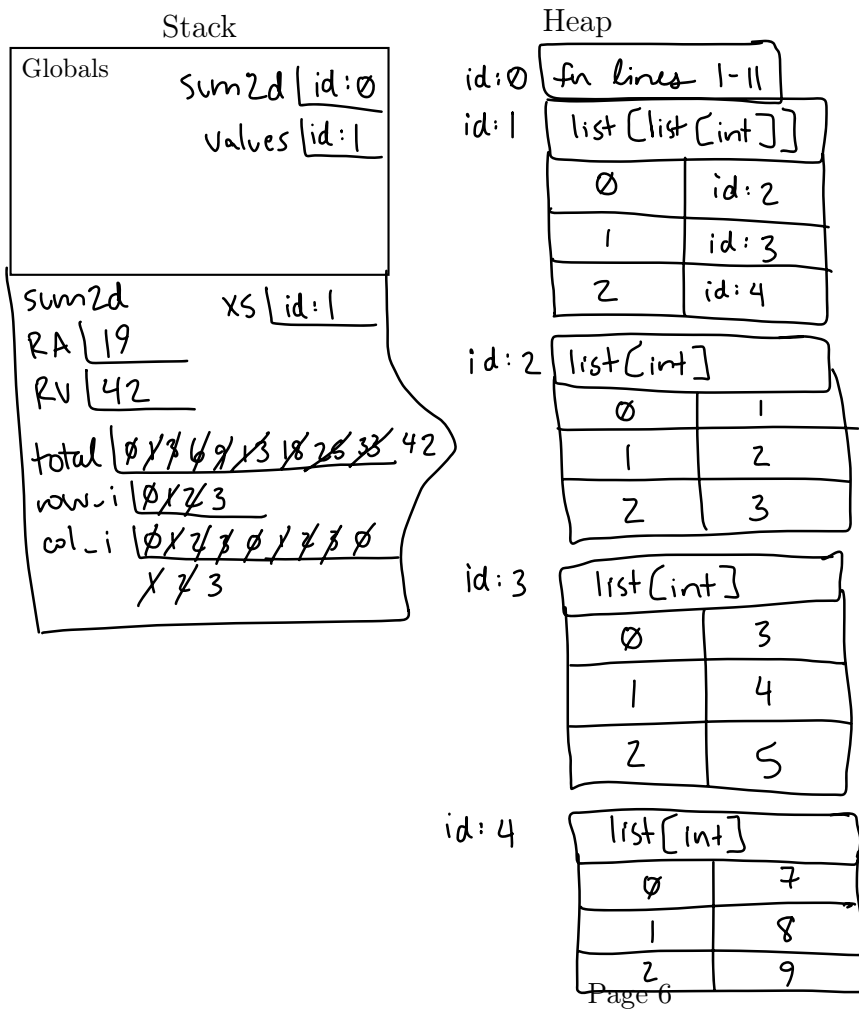 Stack
Globals
sum2d id:0
values id:1
sum2d xs id:1
RA 19
RV 42
total 0 1 3 6 9 13 18 25 33 42
row_i 0 1 2 3
col_i 0 1 2 3 0 1 2 3 0
1 2 3
Heap
id:0 fn lines 1-11
id:1 list[list[int]]
0 id:2
1 id:3
2 id:4
id:2 list[int]
0 1
1 2
2 3
id:3 list[int]
0 3
1 4
2 5
id:4 list[int]
0 7
1 8
2 9
Page 6